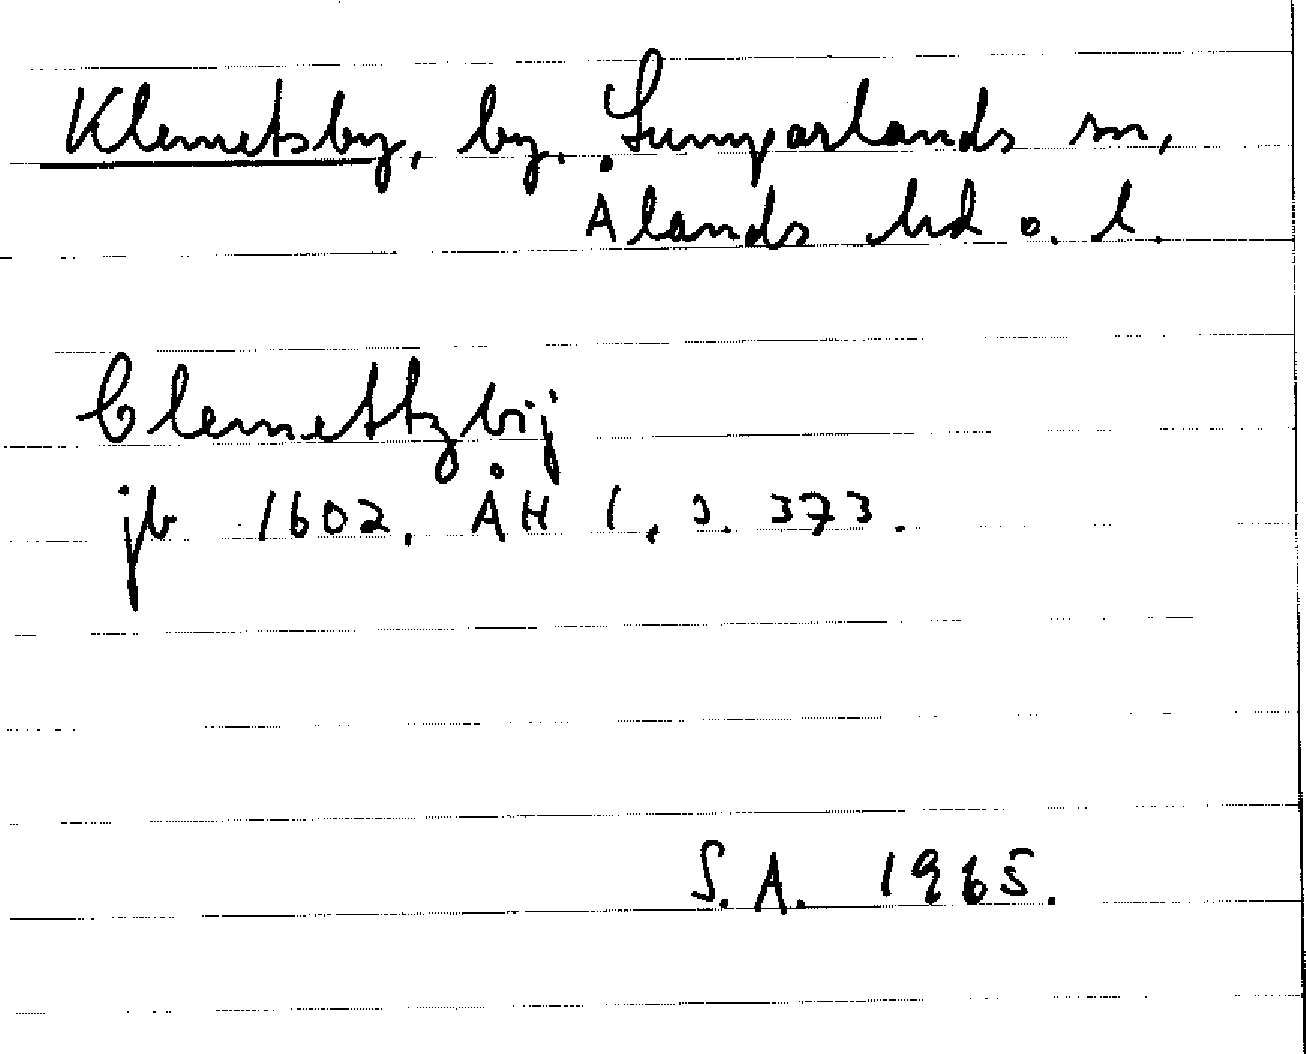 Klemetsby, by, Lumparlands sn,
Ålands hd o. l.
Clemettzbij
jb 1602. ÅH 1, s. 373.
S.A. 1965.